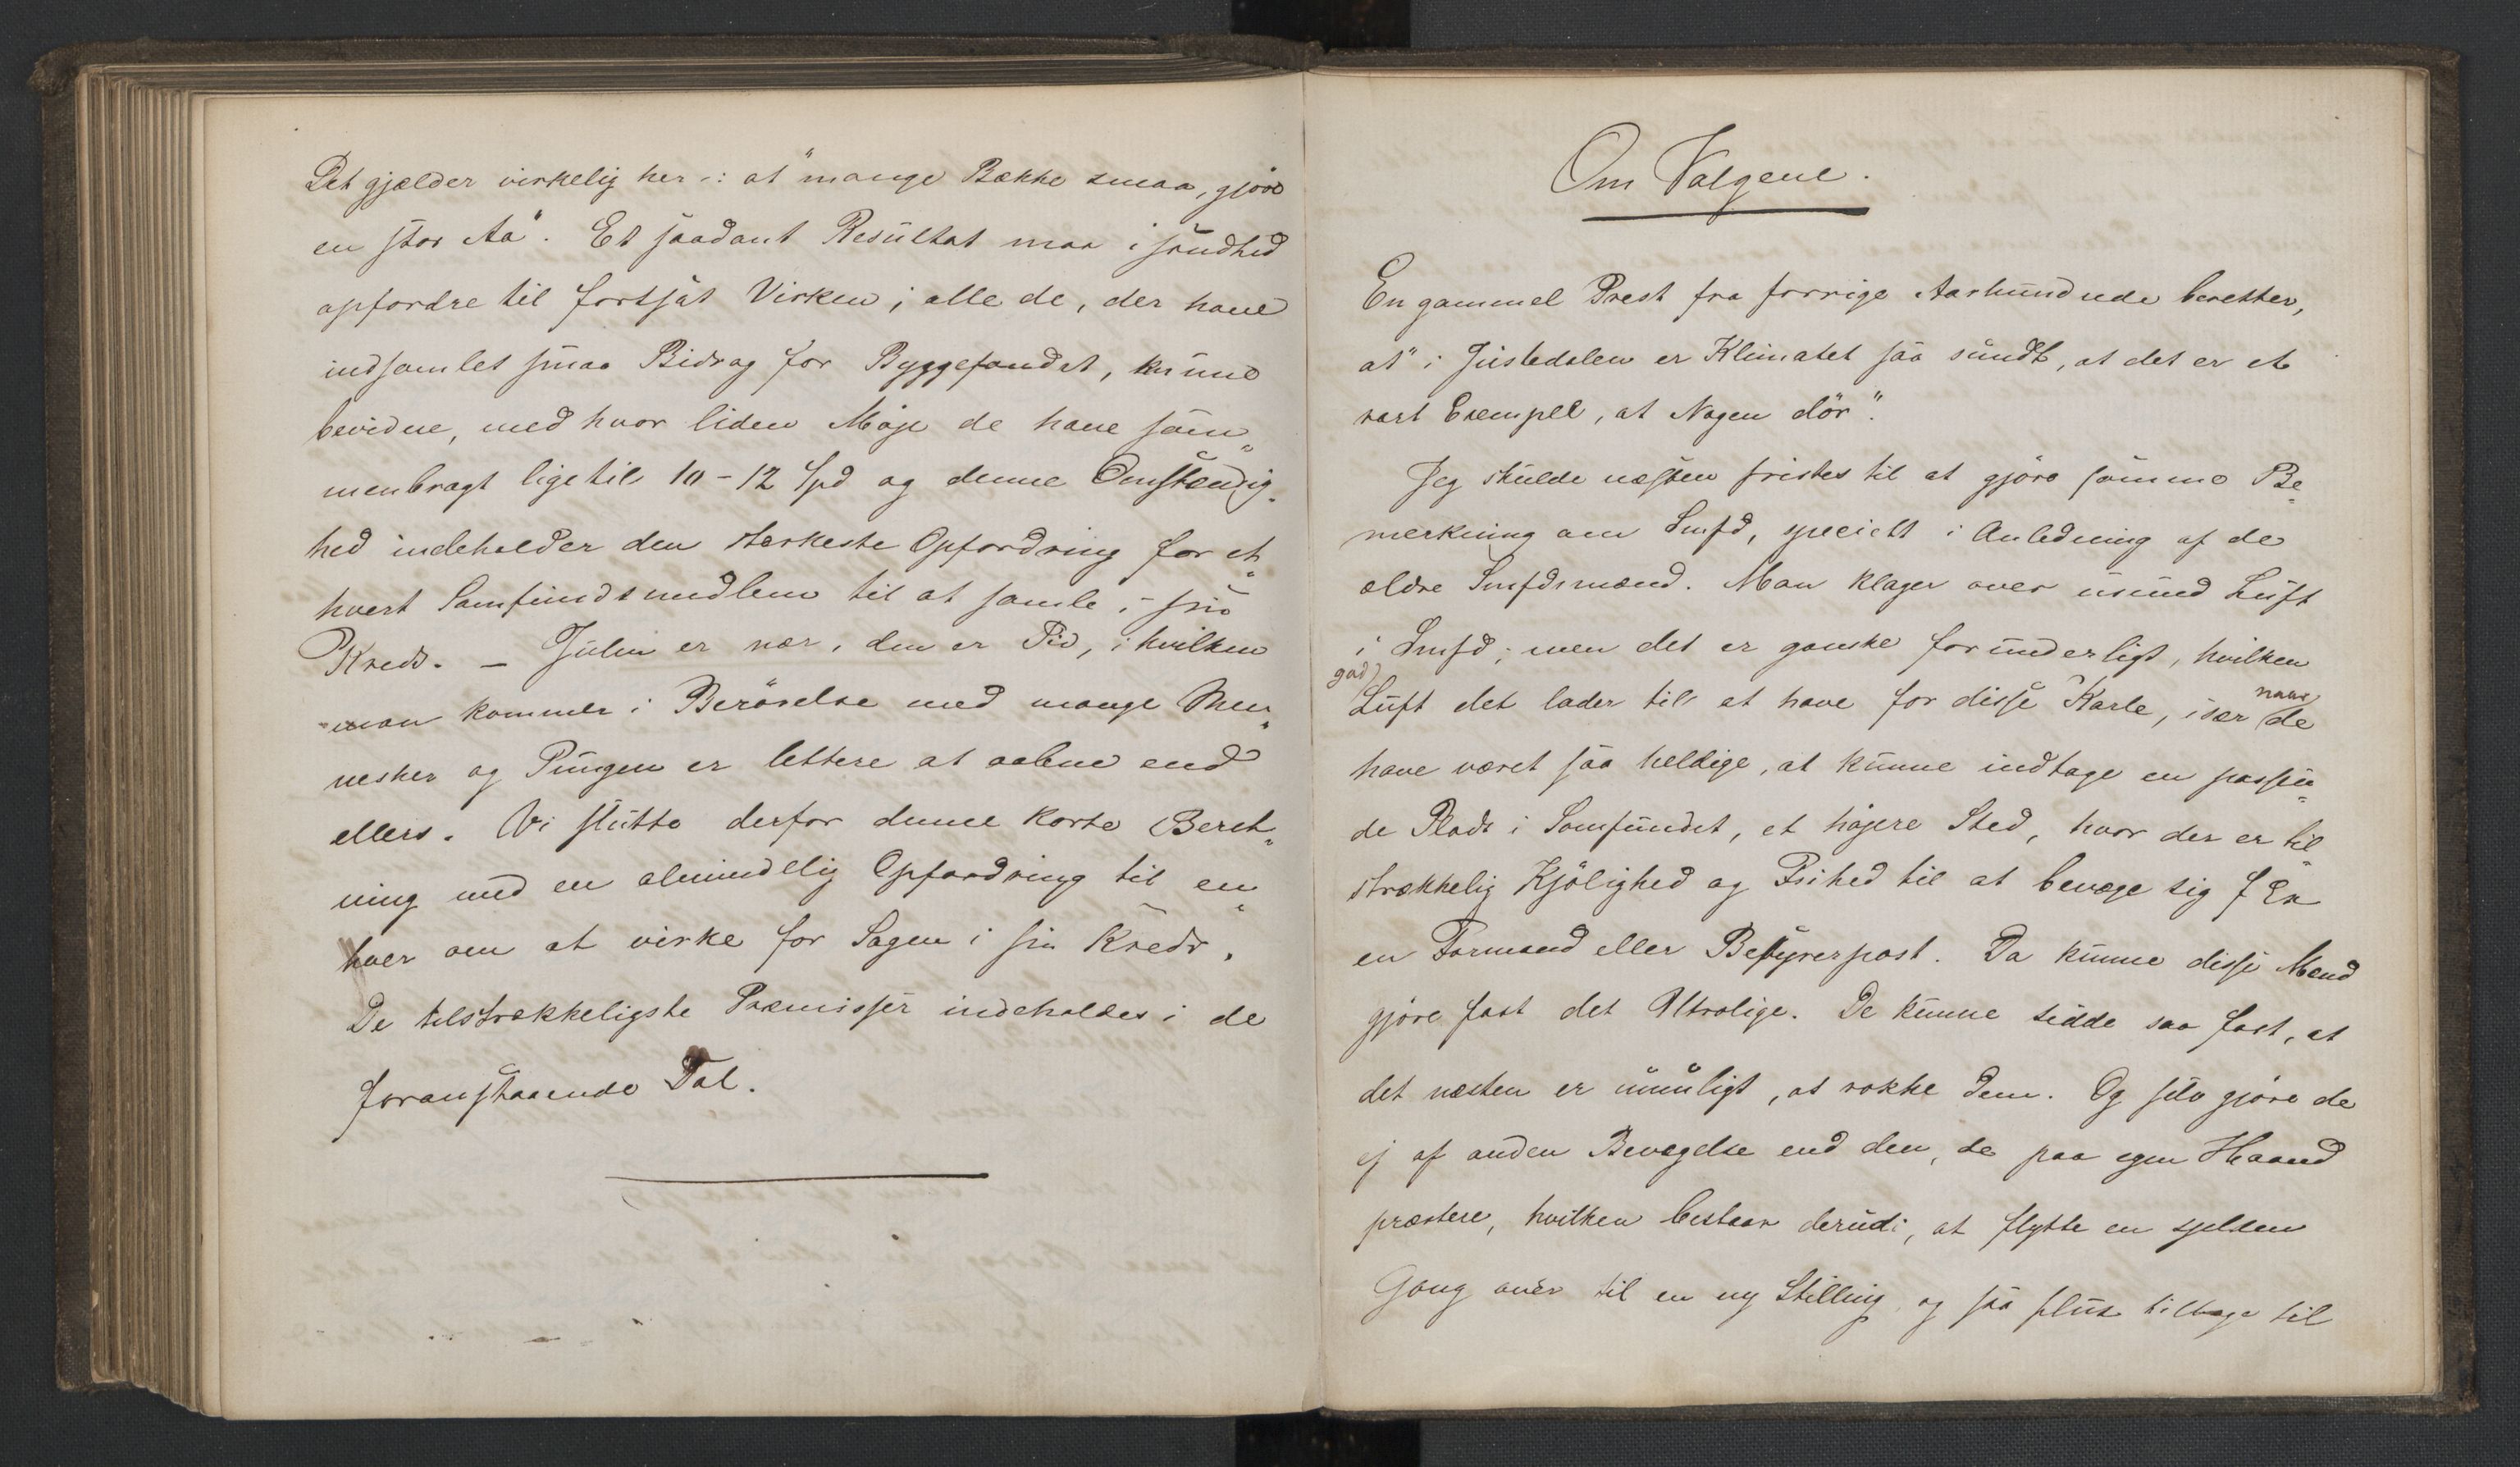 Det gjælder virkelig her -: at "mange Bække smaa, gjøre
en stor Aa". Et saadant Resultat maa i sandhed
opfordre til fortsat Virken; alle de, der have
indsamlet smaa Bidrag for Byggefondet, kunne
bevidne, med hvor liden Møje de have sam„
menbragt ligetil 10-12 Spd og denne Omstændig„
hed indeholder den sterkeste Opfordring for et„
hvert Samfundsmedlem til at samle i sin
Kreds. — Julen er nær, den er Tid, i hvilken
man kommer i Berørelse med mange Men„
nesker og Pungen er lettere at aabne end
ellers. Vi slutte derfor denne korte Beret„
ning med en almindelig Opfordring til en„
hver om at virke for Sagen i sin Kreds.
De tilstrækkeligste Præmisser indeholdes i de
foranstaaende Tal.
Om Valgene.
En gammel Prest fra forrige Aarhundrede beretter,
at "i Justedalen er Klimatet saa sundt, at det er et
rart Exempel, at Nogen dör".
Jeg skulde næsten fristes til at gjöre samme Be„
merkning om Smfd, specielt i Anledning af de
ældre Smfdsmænd. Man klager over usund Luft
i Smfd; men det er ganske forunderligt, hvilken
god
Luft det lader til at have for disse Karle, især naar de
have været saa heldige, at kunne indtage en passen„
de Plads i Samfundet, et højere Sted, hvor der er til„
strækkelig Kjölighed og Frihed til at bevæge sig f Ex
en Formand eller Bestyrerpost. Da kunne disse Mænd
gjöre fast det Utrolige. De kunne sidde saa fast, at
det næsten er umuligt, at rokke dem. Og selv gjöre de
ej af anden Bevægelse end den, de paa egen Haand
præstere, hvilken bestaar derudi, at flytte en sjelden
Gang over til en ny Stilling og saa flux tilbage til